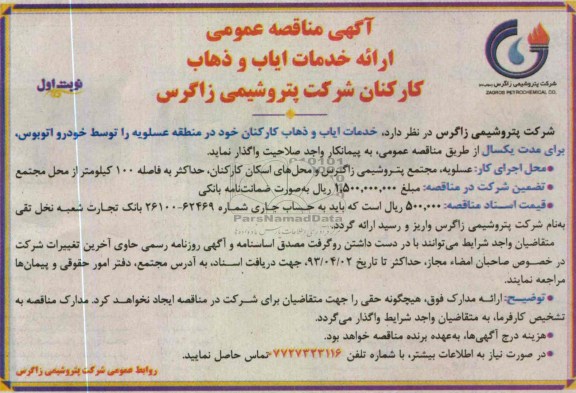 آگهی مناقصه عمومی
ارائه خدمات ایاب و ذهاب
کارکنان شرکت پتروشیمی زاگرس
نوبت اول
شرکت پتروشیمی زاگرس
ZAGROS PETROCHEMICAL CO.
شرکت پتروشیمی زاگرس در نظر دارد، خدمات ایاب و ذهاب کارکنان خود در منطقه عسلویه را توسط خودرو اتوبوس،
برای مدت یکسال از طریق مناقصه عمومی، به پیمانکار واجد صلاحیت واگذار نماید.
●محل اجرای کار: عسلویه، مجتمع پتروشیمی زاگرس و محل‌های اسکان کارکنان، حداکثر به فاصله ۱۰۰ کیلومتر از محل مجتمع
●تضمین شرکت در مناقصه: مبلغ ۱,۵۰۰,۰۰۰,۰۰۰ ریال به‌صورت ضمانت‌نامه بانکی
●قیمت اسناد مناقصه: ۵۰۰,۰۰۰ ریال است که باید به حساب جاری شماره ۶۲۴۶۹-۲۶۱۰۰ بانک تجارت شعبه نخل تقی
به‌نام شرکت پتروشیمی زاگرس واریز و رسید ارائه گردد.
متقاضیان واجد شرایط می‌توانند با در دست داشتن روگرفت مصدق اساسنامه و آگهی روزنامه رسمی حاوی آخرین تغییرات شرکت
در خصوص صاحبان امضاء مجاز، حداکثر تا تاریخ ۹۳/۰۴/۰۲، جهت دریافت اسناد، به آدرس مجتمع، دفتر امور حقوقی و پیمان‌ها
مراجعه نمایند.
●توضیح: ارائه مدارک فوق، هیچگونه حقی را جهت متقاضیان برای شرکت در مناقصه ایجاد نخواهد کرد. مدارک مناقصه به
تشخیص کارفرما، به متقاضیان واجد شرایط واگذار می‌گردد.
●هزینه درج آگهی‌ها، به‌عهده برنده مناقصه خواهد بود.
●در صورت نیاز به اطلاعات بیشتر، با شماره تلفن ۰۷۷۲۷۳۲۳۱۱۶ تماس حاصل نمایید.
روابط عمومی شرکت پتروشیمی زاگرس
ParsNamadData